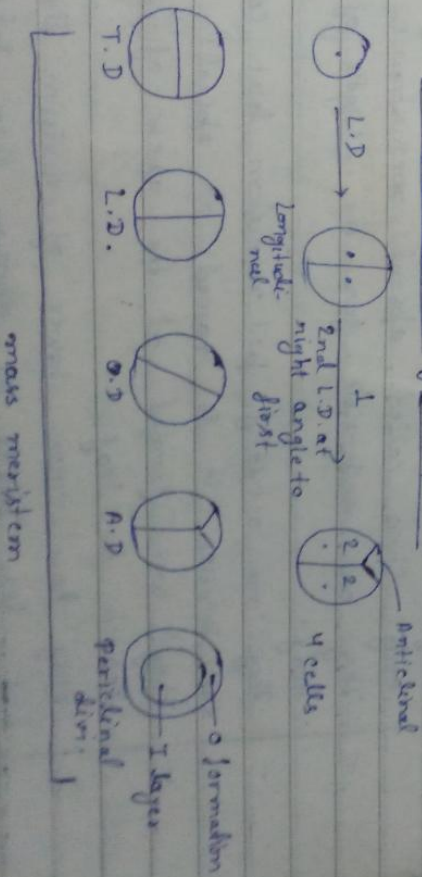 L.D
Longitudi-
nal
1
2nd L.D. at
right angle to
first
2
2
Anticlinal
4 cells
T.D
L.D.
O.D
A.D
Periclinal
div.
O formation
I layer
mass meristem